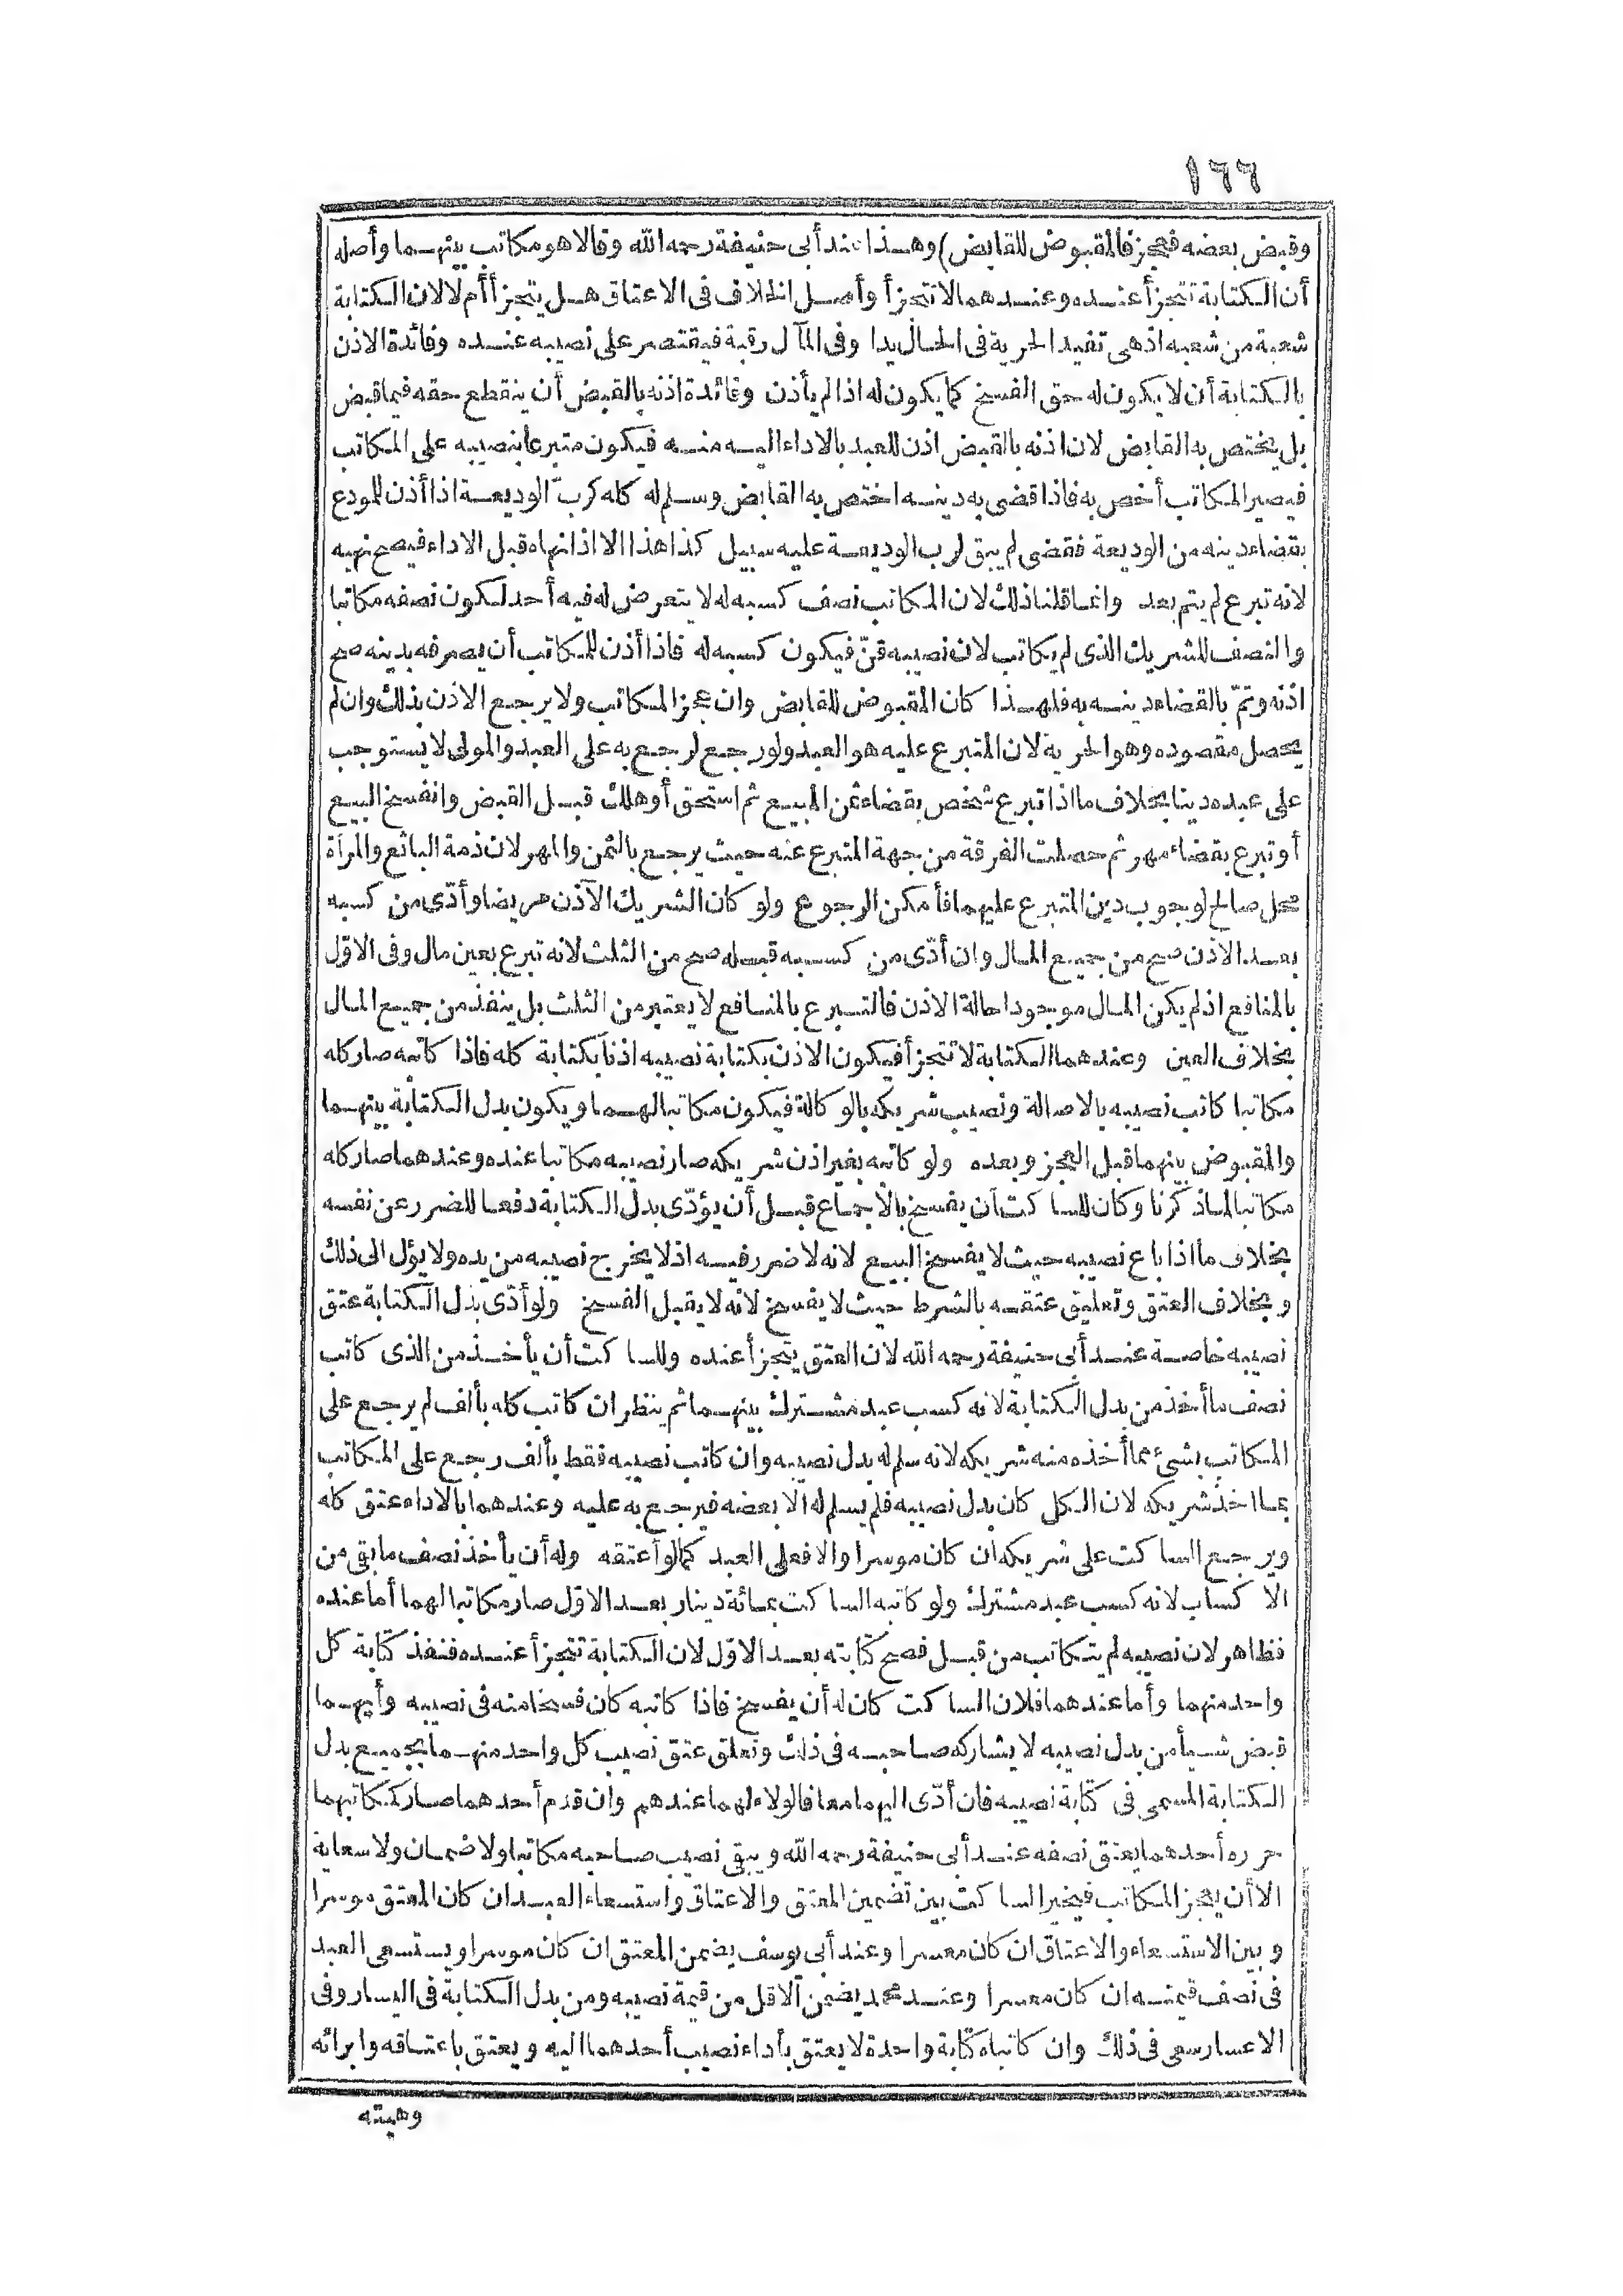 ١٦٦
وقبض بعضه فعجز فالمقبوض للقابض) وهذا عند أبى حنيفة رحمه الله وقالا هو مكاتب بينهما وأصله
أن الكتابة تتجزأ عنده وعندهما لا تتجزأ وأصل الخلاف فى الاعتاق هل يتجزأ أم لا لان الكتابة
شعبة من شعبه اذ هى تفيد الحرية فى الحال يدا وفى المآل رقبة فيقتصر على نصيبه عنده وفائدة الاذن
بالكتابة أن لا يكون له حق الفسخ كما يكون له اذا لم يأذن وفائدة اذنه بالقبض أن ينقطع حقه فيما قبض
بل يختص به القابض لان اذنه بالقبض اذن للعبد بالاداء اليه منه فيكون متبرعا بنصيبه على المكاتب
فيصير المكاتب أخص به فاذا قضى به دينه اختص به القابض وسلم له كله كربّ الوديعة اذا أذن للمودع
بقضاء دينه من الوديعة فقضى لم يبق لرب الوديعة عليه سبيل كذا هذا الا اذا نهاه قبل الاداء فيصح نهيه
لانه تبرع لم يتم بعد وانما قلنا ذلك لان المكاتب نصف كسبه له لا يتعرض له فيه أحد لكون نصفه مكاتبا
والنصف للشريك الذى لم يكاتب لان نصيبه قنّ فيكون كسبه له فاذا أذن للمكاتب أن يصرفه بدينه صح
اذنه وتمّ بالقضاء دينه به فلهذا كان المقبوض للقابض وان عجز المكاتب ولا يرجع الآذن بذلك وان لم
يحصل مقصوده وهو الحرية لان المتبرع عليه هو العبد ولو رجع لرجع به على العبد والمولى لا يستوجب
على عبده دينا بخلاف ما اذا تبرع شخص بقضاء ثمن المبيع ثم استحق أو هلك قبل القبض وانفسخ البيع
أو تبرع بقضاء مهر ثم حصلت الفرقة من جهة المتبرع عنه حيث يرجع بالثمن والمهر لان ذمة البائع والمرأة
محل صالح لوجوب دين المتبرع عليهما فأمكن الرجوع ولو كان الشريك الآذن مريضا وأدّى من كسبه
بعد الاذن صح من جميع المال وان أدّى من كسبه قبله صح من الثلث لانه تبرع بعين مال وفى الاوّل
بالمنافع اذ لم يكن المال موجودا حالة الاذن فالتبرع بالمنافع لا يعتبر من الثلث بل ينفذ من جميع المال
بخلاف العين وعندهما الكتابة لا تتجزأ فيكون الاذن بكتابة نصيبه اذنا بكتابة كله فاذا كاتبه صار كله
مكاتبا كاتب نصيبه بالاصالة ونصيب شريكه بالوكالة فيكون مكاتبا لهما ويكون بدل الكتابة بينهما
والمقبوض بينهما قبل العجز وبعده ولو كاتبه بغير اذن شريكه صار نصيبه مكاتبا عنده وعندهما صار كله
مكاتبا لما ذكرنا وكان للساكت أن يفسخ بالاجماع قبل أن يؤدّى بدل الكتابة دفعا للضرر عن نفسه
بخلاف ما اذا باع نصيبه حيث لا يفسخ البيع لانه لا ضرر فيه اذ لا يخرج نصيبه من يده ولا يؤل الى ذلك
وبخلاف العتق وتعليق عتقه بالشرط حيث لا يفسخ لانه لا يقبل الفسخ ولو أدّى بدل الكتابة عتق
نصيبه خاصة عند أبى حنيفة رحمه الله لان العتق يتجزأ عنده وللساكت أن يأخذ من الذى كاتب
نصف ما أخذ من بدل الكتابة لانه كسب عبد مشترك بينهما ثم ينظر ان كاتب كله بألف لم يرجع على
المكاتب بشئ مما أخذه منه شريكه لانه سلم له بدل نصيبه وان كاتب نصيبه فقط بألف رجع على المكاتب
بما اخذ شريكه لان الكل كان بدل نصيبه فلم يسلم له الا بعضه فيرجع به عليه وعندهما بالاداء عتق كله
ويرجع الساكت على شريكه ان كان موسرا والا فعلى العبد كما لو أعتقه وله أن يأخذ نصف ما بقى من
الا كساب لانه كسب عبد مشترك ولو كاتبه الساكت بمائة دينار بعد الاوّل صار مكاتبا لهما أما عنده
فظاهر لان نصيبه لم يتكاتب من قبل فصح كتابته بعد الاوّل لان الكتابة تتجزأ عنده فنفذ كتابة كل
واحد منهما وأما عندهما فلان الساكت كان له أن يفسخ فاذا كاتبه كان فسخا منه فى نصيبه وأيهما
قبض شيأ من بدل نصيبه لا يشاركه صاحبه فى ذلك وتعلق عتق نصيب كل واحد منهما بجميع بدل
الكتابة المسمى فى كتابة نصيبه فان أدّى اليهما معا فالولاء لهما عندهم وان قدم أحدهما صار كمكاتبهما
حرره أحدهما يعتق نصفه عند أبى حنيفة رحمه الله ويبقى نصيب صاحبه مكاتبا ولا ضمان ولا سعاية
الا أن يعجز المكاتب فيخير الساكت بين تضمين المعتق والاعتاق واستسعاء العبد ان كان المعتق موسرا
وبين الاستسعاء والاعتاق ان كان معسرا وعند أبى يوسف يضمن المعتق ان كان موسرا ويستسعى العبد
فى نصف قيمته ان كان معسرا وعند محمد يضمن الاقل من قيمة نصيبه ومن بدل الكتابة فى اليسار وفى
الاعسار سعى فى ذلك وان كاتباه كتابة واحدة لا يعتق بأداء نصيب أحدهما اليه ويعتق باعتاقه وابرائه
وهبته